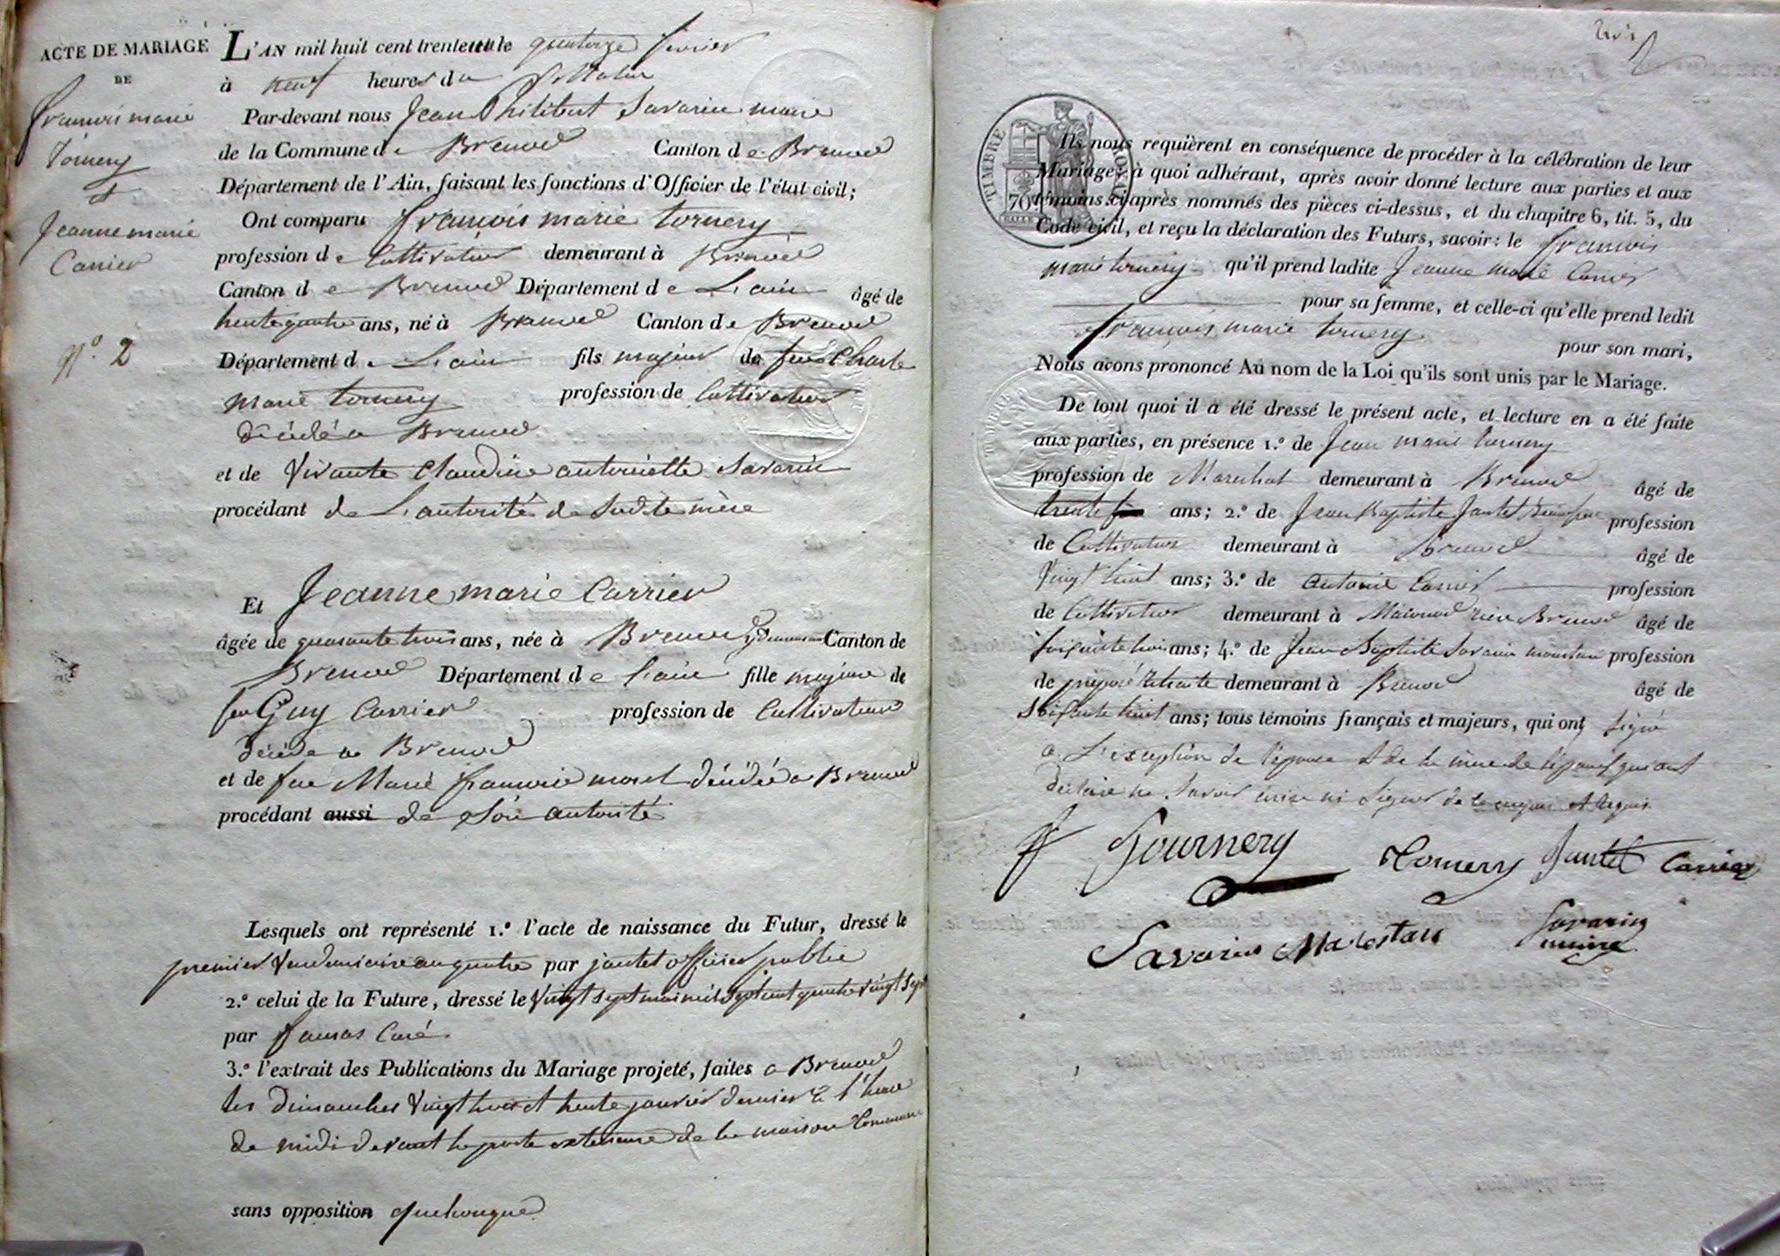 ACTE DE MARIAGE
DE
françois marie
Tornery
et
Jeanne marie
Carrier
N.o 2
L'AN mil huit cent trente et un le quatorze février
à neuf heures du
Par-devant nous Jean Philibert Savarin maire
de la Commune de Brenod Canton de Brenod
Département de l'Ain, faisant les fonctions d'Officier de l'état civil;
Ont comparu françois marie tornery
profession de Cultivateur demeurant à Brenod
Canton de Brenod Département de L'ain âgé de
trente quatre ans, né à Brenod Canton de Brenod
Département de L'ain fils majeur de feu Charle
Marie tornery profession de Cultivateur
décédé a Brenod
et de Vivante Claudine antoinette Savarin
procédant de L'autorité de Sadite mère
Et Jeanne marie Carrier
âgée de quarante trois ans, née à Brenod y demeurant Canton de
Brenod Département de l'ain fille majeure de
feu Guy Carrier profession de Cultivateur
décédé a Brenod
et de feue Marie françoise décédée a Brenod
procédant aussi de Son autorité
Lesquels ont représenté 1.o l'acte de naissance du Futur, dressé le
premier Vendemiaire an quatre par jantet officier public
2.o celui de la Future, dressé le Vingt sept mai mil sept cent quatre vingt sept
par Curé
3.o l'extrait des Publications du Mariage projeté, faites a Brenod
les dimanches Vingt trois et trente janvier dernier à l'heure
de midi devant la porte exterieure de la maison Commune
sans opposition quelconque
TIMBRE ROYAL
70
Ils nous requièrent en conséquence de procéder à la célébration de leur
Mariage; à quoi adhérant, après avoir donné lecture aux parties et aux
témoins ci-après nommés des pièces ci-dessus, et du chapitre 6, tit. 5, du
Code civil, et reçu la déclaration des Futurs, savoir: le françois
marie tornery qu'il prend ladite Jeanne marie Carrier
pour sa femme, et celle-ci qu'elle prend ledit
françois marie tornery pour son mari,
Nous avons prononcé Au nom de la Loi qu'ils sont unis par le Mariage.
De tout quoi il a été dressé le présent acte, et lecture en a été faite
aux parties, en présence 1.o de Jean marie tornery
profession de Marechal demeurant à Brenod âgé de
trente ans; 2.o de Jean Baptiste Jantet profession
de Cultivateur demeurant à Brenod âgé de
Vingt huit ans; 3.o de antoine Carrier profession
de Cultivateur demeurant à Brenod âgé de
soixante trois ans; 4.o de Jean Baptiste Savarin profession
de préposé Retraité demeurant à Brenod âgé de
Soixante huit ans; tous témoins français et majeurs, qui ont signé
a L'exception de l'épouse et de la mère de l'époux qui ont
déclaré ne Savoir écrire ni Signer de ce enquis et Requis
Tournery
Tornery Jantet Carrier
Savarin Savarin
maire